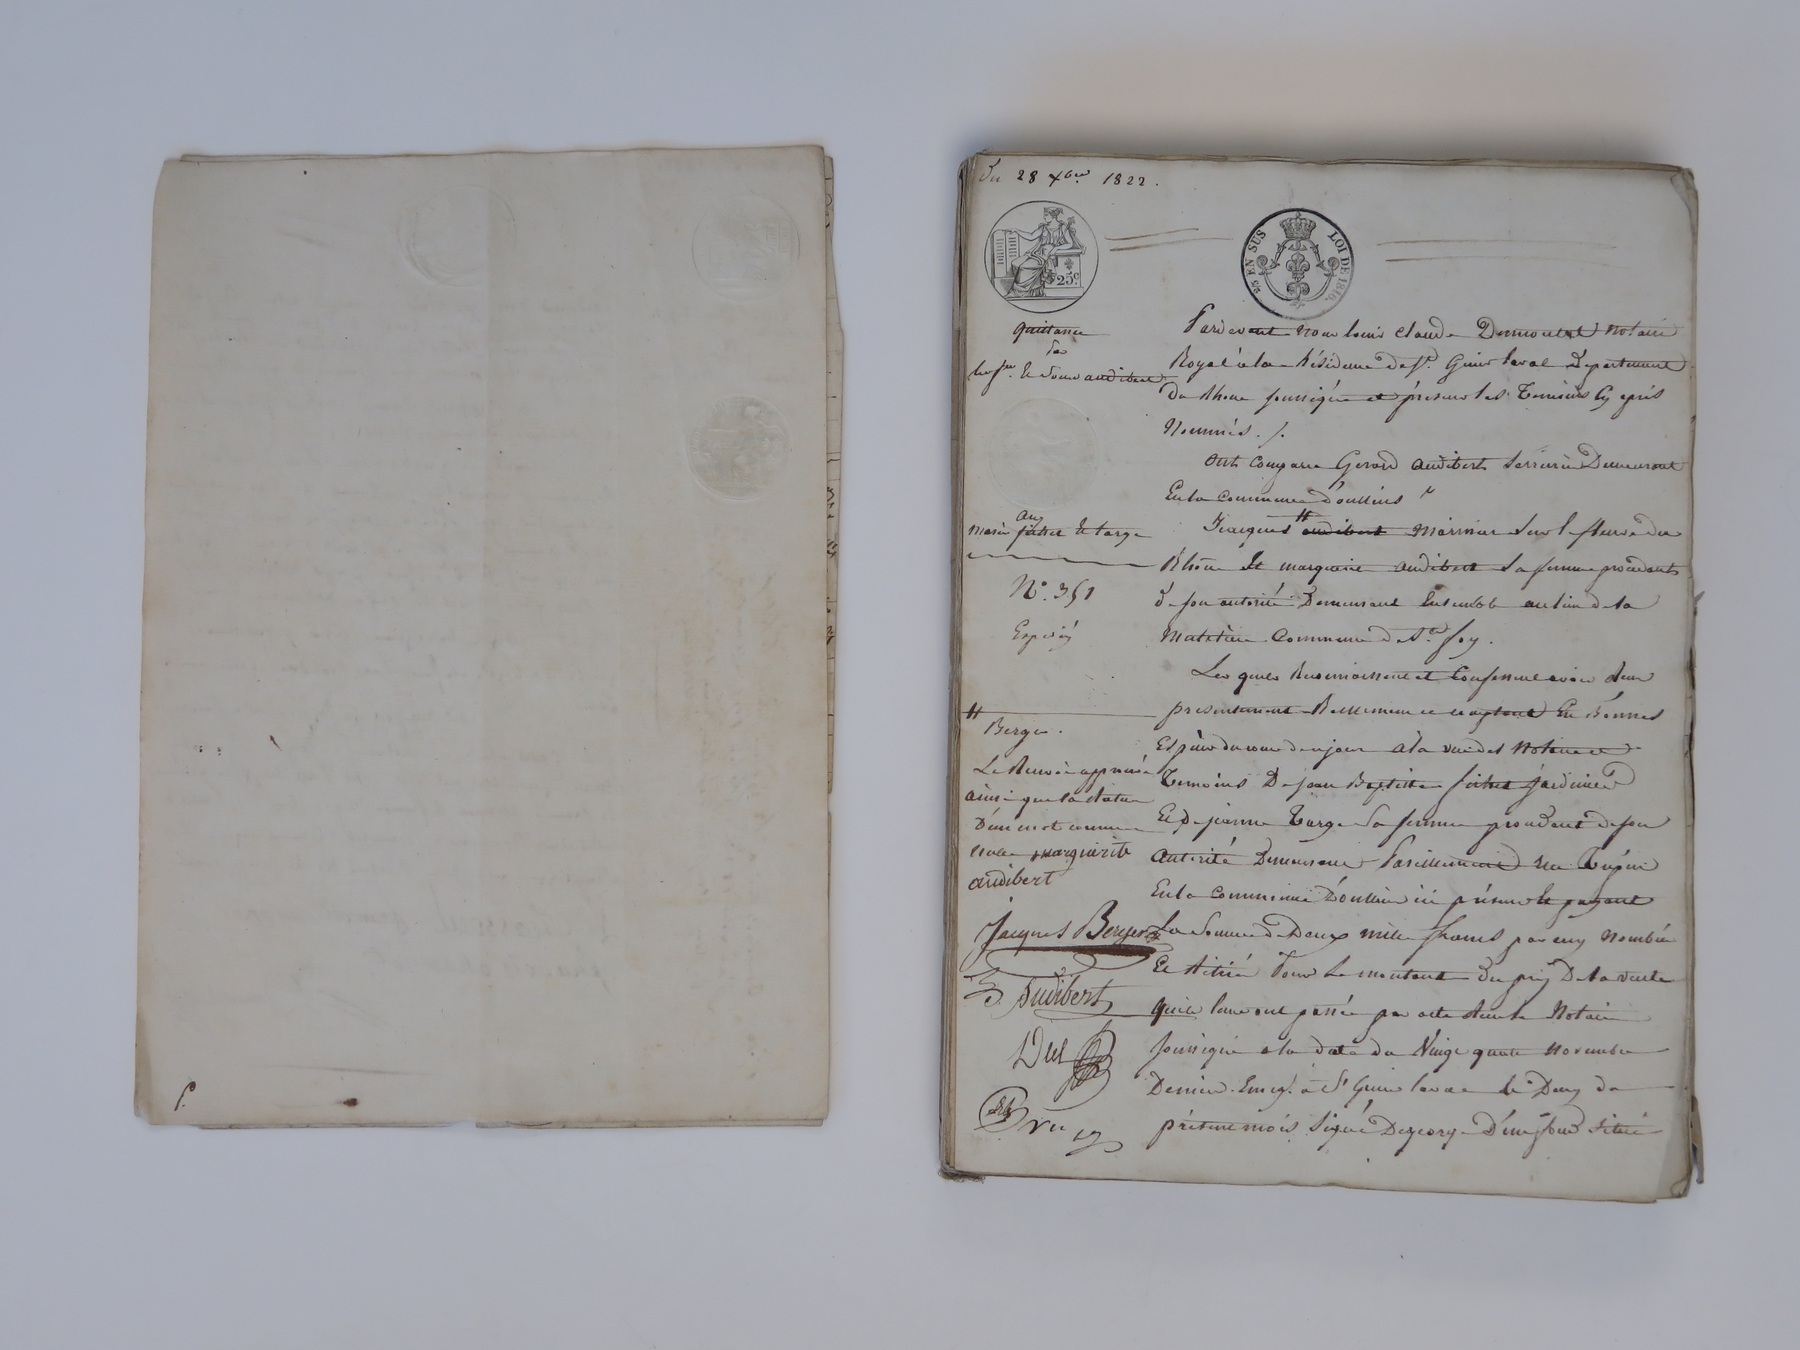 Du 28 Xbre 1822.
25c.
5/5 EN SUS LOI DE 1816.
Quittance
Pardevant Nous louis Claude Notaire
Royal à la Résidence de St. Genis laval Département
Du Rhône soussigné et présents les Temoins Cy après
Nommés ./.
Ont Comparu Gerard audibert Serrurier Demeurant
En la Commune D'oullins
aux
mariés fichet et targe
Jacques # audibert Marinier sur le fleuve du
Rhône Et marguerite audibert Sa femme procédante
de son autorité Demeurant Ensemble au lieu de la
Commune de Ste. foy.
N°. 351
Expedié
Les quels Reconnoissent et Confessent avoir
présentement Réellement et comptant En Bonnes
Espèces du cours de ce jour à la vue des Notaire et
Temoins De Jean Baptiste fichet jardinier
Et De jeanne Targe Sa femme procédant de son
autorité Demeurant
En la Commune D'oullins ici présents le payant
La Somme de Deux mille francs par eux Nombrée
Et Retirée Pour Le montant Du prix De la vente
quils leur ont passée par acte Notaire
soussigné à la date du Vingt quatre Novembre
Dernier. Enregt. à St Genis laval le Deux du
présent mois Signé Degeorge D'un fond situé
#
Berger.
Le Renvoi approuvé
ainsi que la rature
D'un mot comme
nulle marguerite
audibert
Jacques Berger
G. Audibert
P.